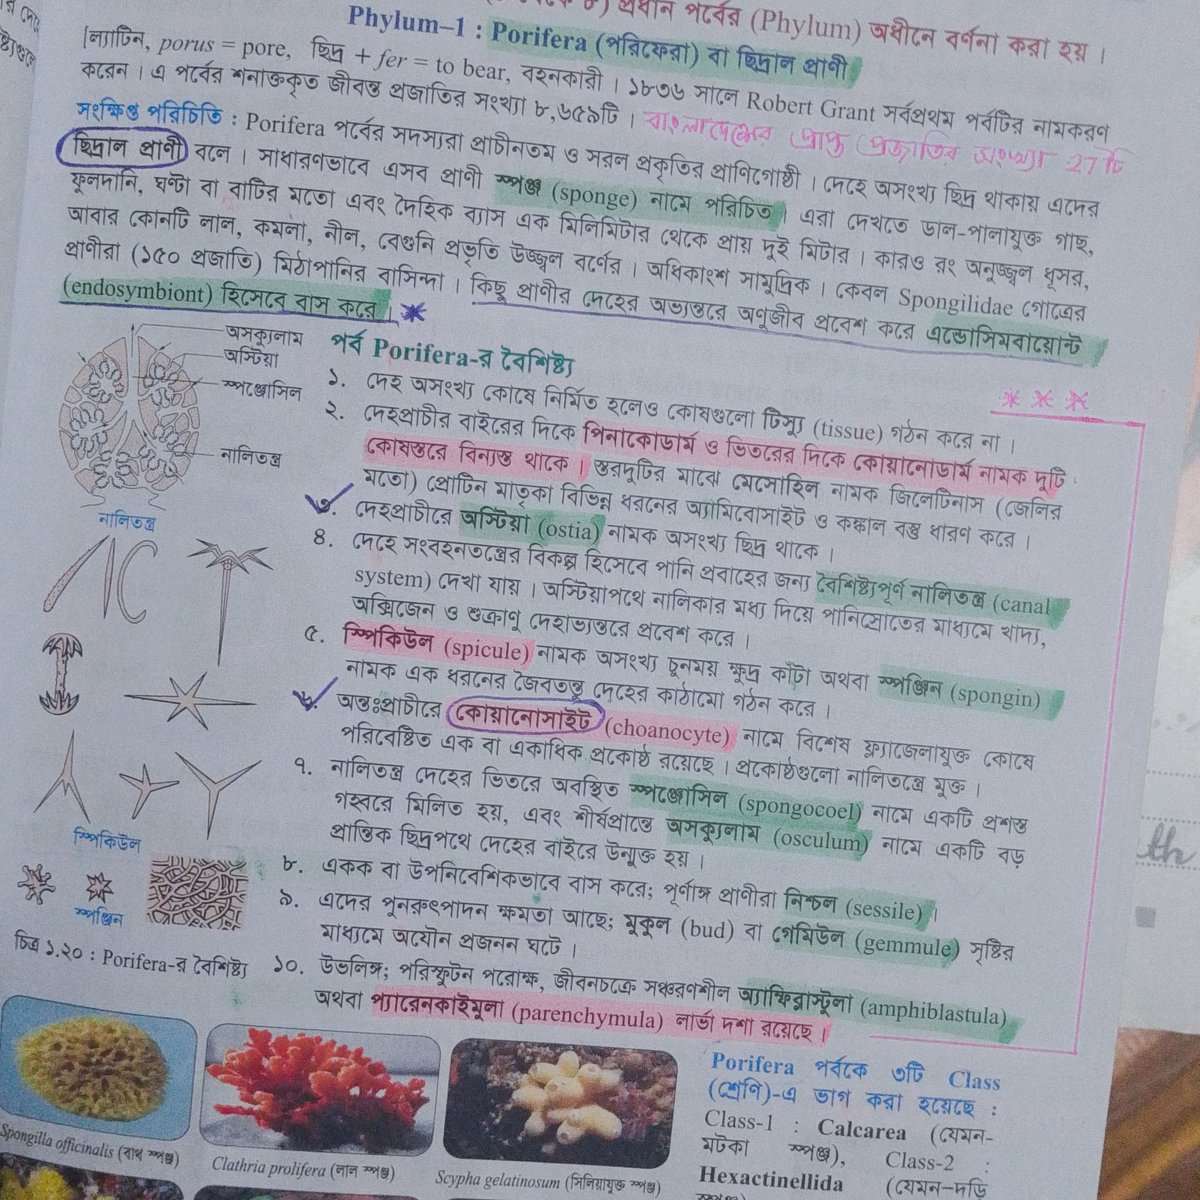 প্রধান পর্বের (Phylum) অধীনে বর্ণনা করা হয় ।
Phylum–1 : Porifera (পরিফেরা) বা ছিদ্রাল প্রাণী
[ল্যাটিন, porus = pore, ছিদ্র + fer = to bear, বহনকারী । ১৮৩৬ সালে Robert Grant সর্বপ্রথম পর্বটির নামকরণ
করেন । এ পর্বের শনাক্তকৃত জীবন্ত প্রজাতির সংখ্যা ৮,৬৫৯টি । বাংলাদেশের প্রাপ্ত প্রজাতির সংখ্যা 27 টি
সংক্ষিপ্ত পরিচিতি : Porifera পর্বের সদস্যরা প্রাচীনতম ও সরল প্রকৃতির প্রাণিগোষ্ঠী । দেহে অসংখ্য ছিদ্র থাকায় এদের
ছিদ্রাল প্রাণী বলে । সাধারণভাবে এসব প্রাণী স্পঞ্জ (sponge) নামে পরিচিত । এরা দেখতে ডাল-পালাযুক্ত গাছ,
ফুলদানি, ঘণ্টা বা বাটির মতো এবং দৈহিক ব্যাস এক মিলিমিটার থেকে প্রায় দুই মিটার । কারও রং অনুজ্জ্বল ধূসর,
আবার কোনটি লাল, কমলা, নীল, বেগুনি প্রভৃতি উজ্জ্বল বর্ণের । অধিকাংশ সামুদ্রিক । কেবল Spongilidae গোত্রের
প্রাণীরা (১৫০ প্রজাতি) মিঠাপানির বাসিন্দা । কিছু প্রাণীর দেহের অভ্যন্তরে অণুজীব প্রবেশ করে এন্ডোসিমবায়োন্ট
(endosymbiont) হিসেবে বাস করে ।
অসক্যুলাম
অস্টিয়া
স্পঞ্জোসিল
নালিতন্ত্র
নালিতন্ত্র
পর্ব Porifera-র বৈশিষ্ট্য
১. দেহ অসংখ্য কোষে নির্মিত হলেও কোষগুলো টিস্যু (tissue) গঠন করে না ।
২. দেহপ্রাচীর বাইরের দিকে পিনাকোডার্ম ও ভিতরের দিকে কোয়ানোডার্ম নামক দুটি
কোষস্তরে বিন্যস্ত থাকে । স্তরদুটির মাঝে মেসোহিল নামক জিলেটিনাস (জেলির
মতো) প্রোটিন মাতৃকা বিভিন্ন ধরনের অ্যামিবোসাইট ও কঙ্কাল বস্তু ধারণ করে ।
৩. দেহপ্রাচীরে অস্টিয়া (ostia) নামক অসংখ্য ছিদ্র থাকে ।
৪. দেহে সংবহনতন্ত্রের বিকল্প হিসেবে পানি প্রবাহের জন্য বৈশিষ্ট্যপূর্ণ নালিতন্ত্র (canal
system) দেখা যায় । অস্টিয়াপথে নালিকার মধ্য দিয়ে পানিস্রোতের মাধ্যমে খাদ্য,
অক্সিজেন ও শুক্রাণু দেহাভ্যন্তরে প্রবেশ করে ।
৫. স্পিকিউল (spicule) নামক অসংখ্য চুনময় ক্ষুদ্র কাঁটা অথবা স্পঞ্জিন (spongin)
নামক এক ধরনের জৈবতন্তু দেহের কাঠামো গঠন করে ।
৬. অন্তঃপ্রাচীরে কোয়ানোসাইট (choanocyte) নামে বিশেষ ফ্ল্যাজেলাযুক্ত কোষে
পরিবেষ্টিত এক বা একাধিক প্রকোষ্ঠ রয়েছে । প্রকোষ্ঠগুলো নালিতন্ত্রে যুক্ত ।
৭. নালিতন্ত্র দেহের ভিতরে অবস্থিত স্পঞ্জোসিল (spongocoel) নামে একটি প্রশস্ত
গহ্বরে মিলিত হয়, এবং শীর্ষপ্রান্তে অসক্যুলাম (osculum) নামে একটি বড়
প্রান্তিক ছিদ্রপথে দেহের বাইরে উন্মুক্ত হয় ।
৮. একক বা উপনিবেশিকভাবে বাস করে; পূর্ণাঙ্গ প্রাণীরা নিশ্চল (sessile) ।
৯. এদের পুনরুৎপাদন ক্ষমতা আছে; মুকুল (bud) বা গেমিউল (gemmule) সৃষ্টির
মাধ্যমে অযৌন প্রজনন ঘটে ।
১০. উভলিঙ্গ; পরিস্ফুটন পরোক্ষ, জীবনচক্রে সঞ্চরণশীল অ্যাম্ফিব্লাস্টুলা (amphiblastula)
অথবা প্যারেনকাইমুলা (parenchymula) লার্ভা দশা রয়েছে ।
স্পিকিউল
স্পঞ্জিন
চিত্র ১.২০ : Porifera-র বৈশিষ্ট্য
Spongilla officinalis (বাথ স্পঞ্জ)
Clathria prolifera (লাল স্পঞ্জ)
Scypha gelatinosum (সিলিয়াযুক্ত স্পঞ্জ)
Porifera পর্বকে ৩টি Class
(শ্রেণি)-এ ভাগ করা হয়েছে :
Class-1 : Calcarea (যেমন-
মটকা স্পঞ্জ), Class-2 :
Hexactinellida (যেমন-দড়ি
th